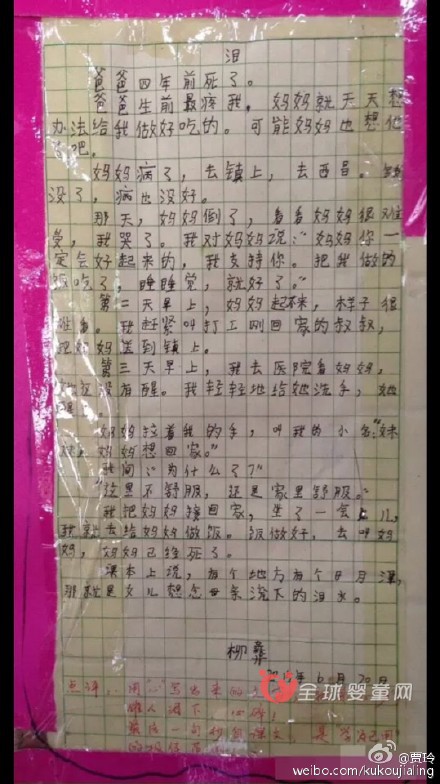 泪
爸爸四年前死了。
爸爸生前最疼我，妈妈就天天想
办法给我做好吃的。可能妈妈也想他
了吧。
妈妈病了，去镇上，去西昌。钱
没了，病也没好。
那天，妈妈倒了，看着妈妈很难
受，我哭了。我对妈妈说：“妈妈你一
定会好起来的，我支持你。把我做的
饭吃了，睡睡觉，就好了。”
第二天早上，妈妈起不来，样子很
难看。我赶紧叫打工刚回家的叔叔，
把妈妈送到镇上。
第三天早上，我去医院看妈妈，
她还没有醒。我轻轻地给她洗手，她
醒
妈妈拉着我的手，叫我的小名：“妹
妹，妈妈想回家。”
我问：“为什么了？”
“这里不舒服，还是家里舒服。”
我把妈妈接回家，坐了一会儿，
我就去给妈妈做饭。饭做好，去叫妈
妈，妈妈已经死了。
课本上说，有个地方有个日月潭，
那就是女儿想念母亲流下的泪水。
柳彝
6月30日
点评：用“心”写出来的
催人泪下
最后一句
全球婴童网
@贾玲
weibo.com/kukoujialing